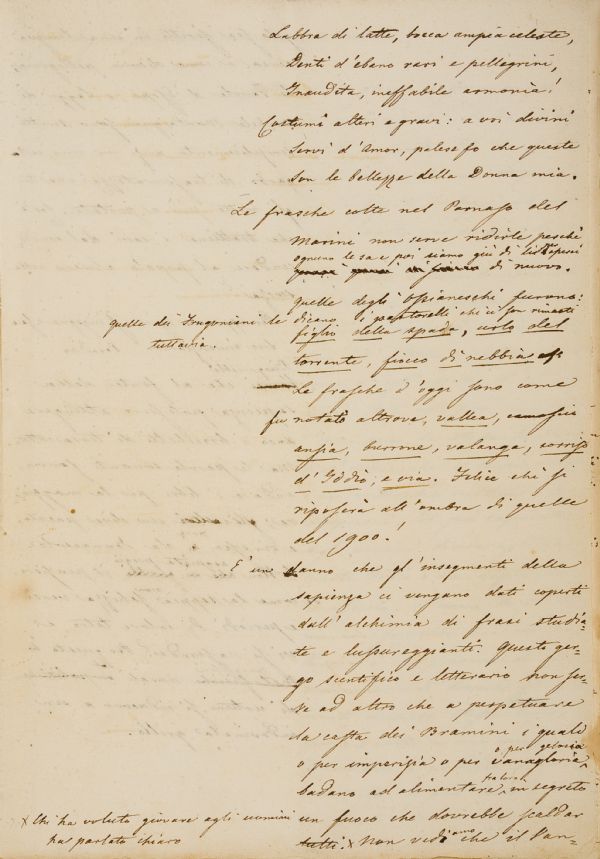 Labbra di latte, bocca ampia celeste,
Denti d'ebano rari e pellegrini,
Inaudita, ineffabile armonia!
Costumi alteri e gravi: a voi divini
Servi d'Amor, paleso fo che queste
Son le bellezze della Donna mia.
Le frasche colte nel Parnaso del
Marini non serve ridirle perchè
ognuno le sa e poi siamo giù di lì
di nuovo.
quelle degli Ossianeschi furono:
quelle dei Frugoniani le dicano i pastorelli che ci son rimasti
tuttavia.
figlio della spada, urlo del
torrente, fiocco di nebbia
Le frasche d'oggi sono come
fu notato altrove, vallea,
ansia, burrone, valanga, sorriso
d'Iddio, e via. Felice chi si
riposerà all'ombra di quelle
del 1900!
E' un danno che gl'insegnamenti della
sapienza ci vengano dati coperti
dall'alchimia di frasi studia-
te e lussureggianti. Questo ger-
go scientifico e letterario non ser-
ve ad altro che a perpetuare
la casta dei Bramini i quali
o per gelosia
o per imperizia o per vanagloria
badano ad alimentare in segreto
un fuoco che dovrebbe scaldar
tutti. x Non vediamo che il Pan-
x Chi ha voluto giovare agli uomini
ha parlato chiaro